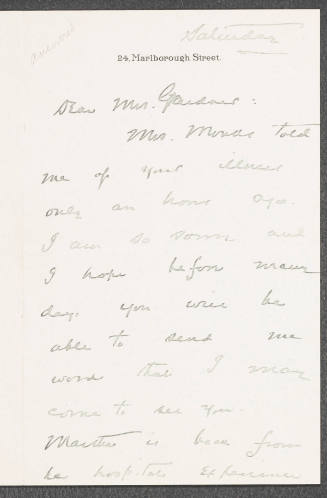 answered
Saturday
24, Marlborough Street.
Dear Mrs. Gardner:
Mrs. told
me of your illness
only an hour ago.
I am so sorry and
I hope before many
days you will be
able to send me
word that I may
come to see you.
is back from
he hospital experience